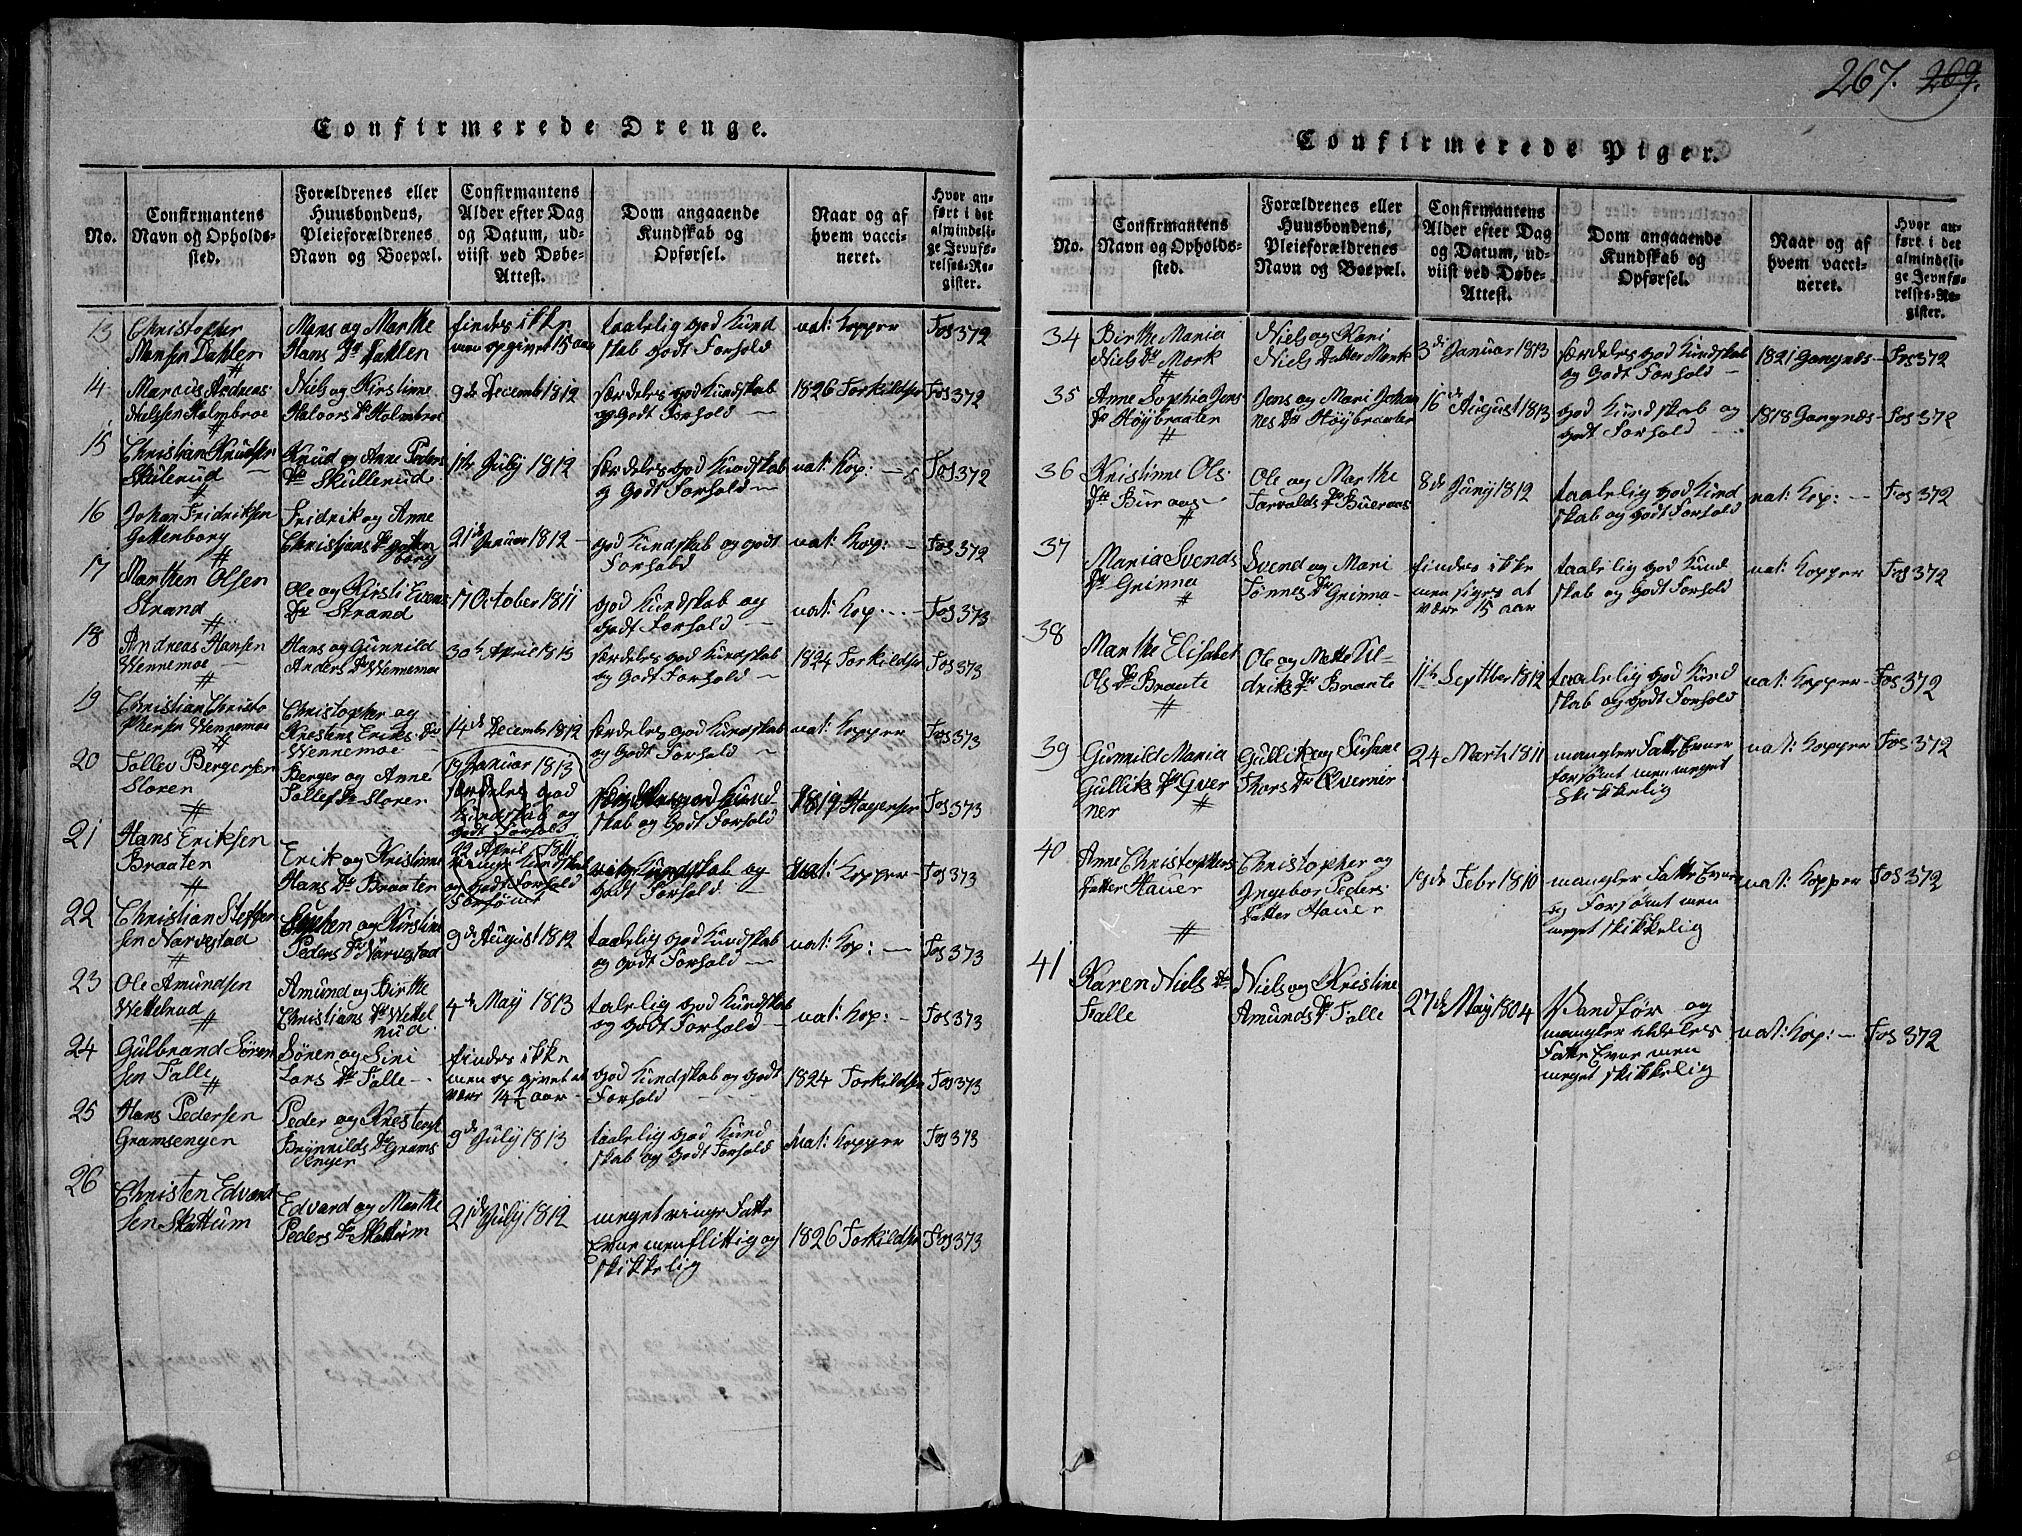 267. 269.
Confirmerede Drenge.
No.
Confirmantens
Navn og Opholds-
sted.
Forældrenes eller
Huusbondens,
Pleieforældrenes
Navn og Boepæl.
Confirmantens
Alder efter Dag
og Datum, ud-
viist ved Døbe-
Attest.
Dom angaaende
Kundskab og
Opførsel.
Naar og af
hvem vacci-
neret.
Hvor an-
ført i det
almindeli-
ge Jevnfø-
relses-Re-
gister.
13
Christopher
Dahlen
Mons og Marthe
Hans Dr Dahlen
findes ikke
men opgivet 15 aar
taalelig god Kund
skab godt Forhold
nat: Kopper
Fos 372
14
Marcus Andreas
Nielsen Holmbroe
Niels og Kirstinne
Halvors Dr Holmbroe
9de Decemb 1812
særdeles god Kundskab
og Godt Forhold
1826 Torkildsen
Fos 372
15
Christian Knudsen
Skulerud
Knud og Anne Peders
Dr Skullerud
1ste July 1812
særdeles god Kundskab
og Godt Forhold
nat: Kop:
Fos 372
16
Johan Fridriksen
Gottenborg
Fridrik og Anne
Christians Dr Gotten
borg
21de Januar 1812
god Kundskab og godt
Forhold
nat: Kop:
Fos 372
17
Marthen Olsen
Strand
Ole og Kirsti
Dr Strand
17 October 1811
god Kundskab og
Godt Forhold
nat: Kop.
Fos 373
18
Andreas Hansen
Wennemoe
Hans og Gunnild
Anders Dr Wennemoe
30te April 1813
særdeles god Kundskab
og Godt Forhold
1824 Torkildsen
Fos 373
19
Christian Christo
phersen Wennemoe
Christopher og
Kresten Eriks Dr
Wennemoe
14de Decemb 1812
særdeles god Kundskab
og Godt Forhold
nat: Kopper
Fos 373
20
Tollev Bergersen
Sloren
Berger og Anne
Tollef Dr Sloren
19 Januar 1813
særdeles god
Kundskab og
godt Forhold
Kund-
skab og Godt Forhold
1819
Fos 373
21
Hans Eriksen
Braaten
Erik og Kristinne
Hans Dr Braaten
22 April 1811
ringe Kundskab
og Godt Forhold
Forsømt
Kundskab og
Godt Forhold
nat: Kopper
Fos 373
22
Christian Steffen
sen Narvestad
Steffen og Kirstine
Peders Dr Narvestad
9de August 1812
taalelig god Kundskab
og godt Forhold
nat: Kop:
Fos 373
23
Ole Amundsen
Wettelrud
Amund og Birthe
Christians Dr Wettel
rud
4de May 1813
talelig god Kundskab
og Godt Forhold
nat: Kop:
Fos 373
24
Gulbrand Søren
sen Falle
Søren og Siri
Lars Dr Falle
findes ikke
men op givet at
være 14½ aar
god Kundskab og godt
Forhold
1824 Torkildsen
Fos 373
25
Hans Pedersen
Gramsengen
Peder og
Brynnilds Dr Grams
Enger
9de July 1813
taalelig god Kund
skab og Godt Forhold
Nat: Kopper
Fos 373
26
Christen Edvard
sen Skattum
Edvard og Marthe
Peders Dr Skattum
21de July 1812
meget ringe Fatte
Evne men flittig og
skikkelig
1826 Torkildsen
Fos 373
Confirmerede Piger.
No.
Confirmantens
Navn og Opholds-
sted.
Forældrenes eller
Huusbondens,
Pleieforældrenes
Navn og Boepæl.
Confirmantens
Alder efter Dag
og Datum, ud-
viist ved Døbe-
Attest.
Dom angaaende
Kundskab og
Opførsel.
Naar og af
hvem vacci-
neret.
Hvor an-
ført i det
almindeli-
ge Jevnfø-
relses-Re-
gister.
34
Birthe Maria
Niels Dr Mork
Niels og Kari
Niels Datter Mork
3die Januar 1813
særdeles god Kundskab
og Godt Forhold
1821 Gangnæs
Fos 372
35
Anne Sophia Jens
Dr Høybraaten
Jens og Mari Johan
nes Dr Høybraaten
16de August 1813
god Kundskab og
Godt Forhold
1818 Gangnæs
Fos 372
36
Kristinne Ols
Dr Buraas
Ole og Marthe
Torvalds Dr Bueraas
8de Juny 1812
taalelig god Kund
skab og Godt Forhold
nat: Kop:
Fos 372
37
Maria Svends
Dr Grinna
Svend og Mari
Tønnes Dr Grinna
findes ikke
men siges at
være 15 aar
taalelig god Kund
skab og Godt Forhold
nat: Kopper
Fos 372
38
Marthe Elisabet
Ols Dr Braate
Ole og Mette
Dr Braate
11te Septber 1812
taalelig god Kund
skab og Godt Forhold
nat: Kopper
Fos 372
39
Gunnild Maria
Gulliks Dr Qver
ner
Gullik og Susane
Thors Dr Qverner
24 Marti 1811
mangler Fatte Evner
forsømt men meget
skikkelig
nat: Kopper
Fos 372
40
Anne Christophers
Datter Hauer
Christopher og
Ingebor Peders
Datter Hauer
19de Febr 1810
mangler Fatte Evne
og Forsømt men
meget skikkelig
nat: Kopper
Fos 372
41
Karen Niels Dr
Falle
Niels og Kristine
Amunds Dr Falle
27de May 1804
Vandfør og
mangler aldeles
Fatte Evne men
meget skikkelig
nat: Kop:
Fos 372